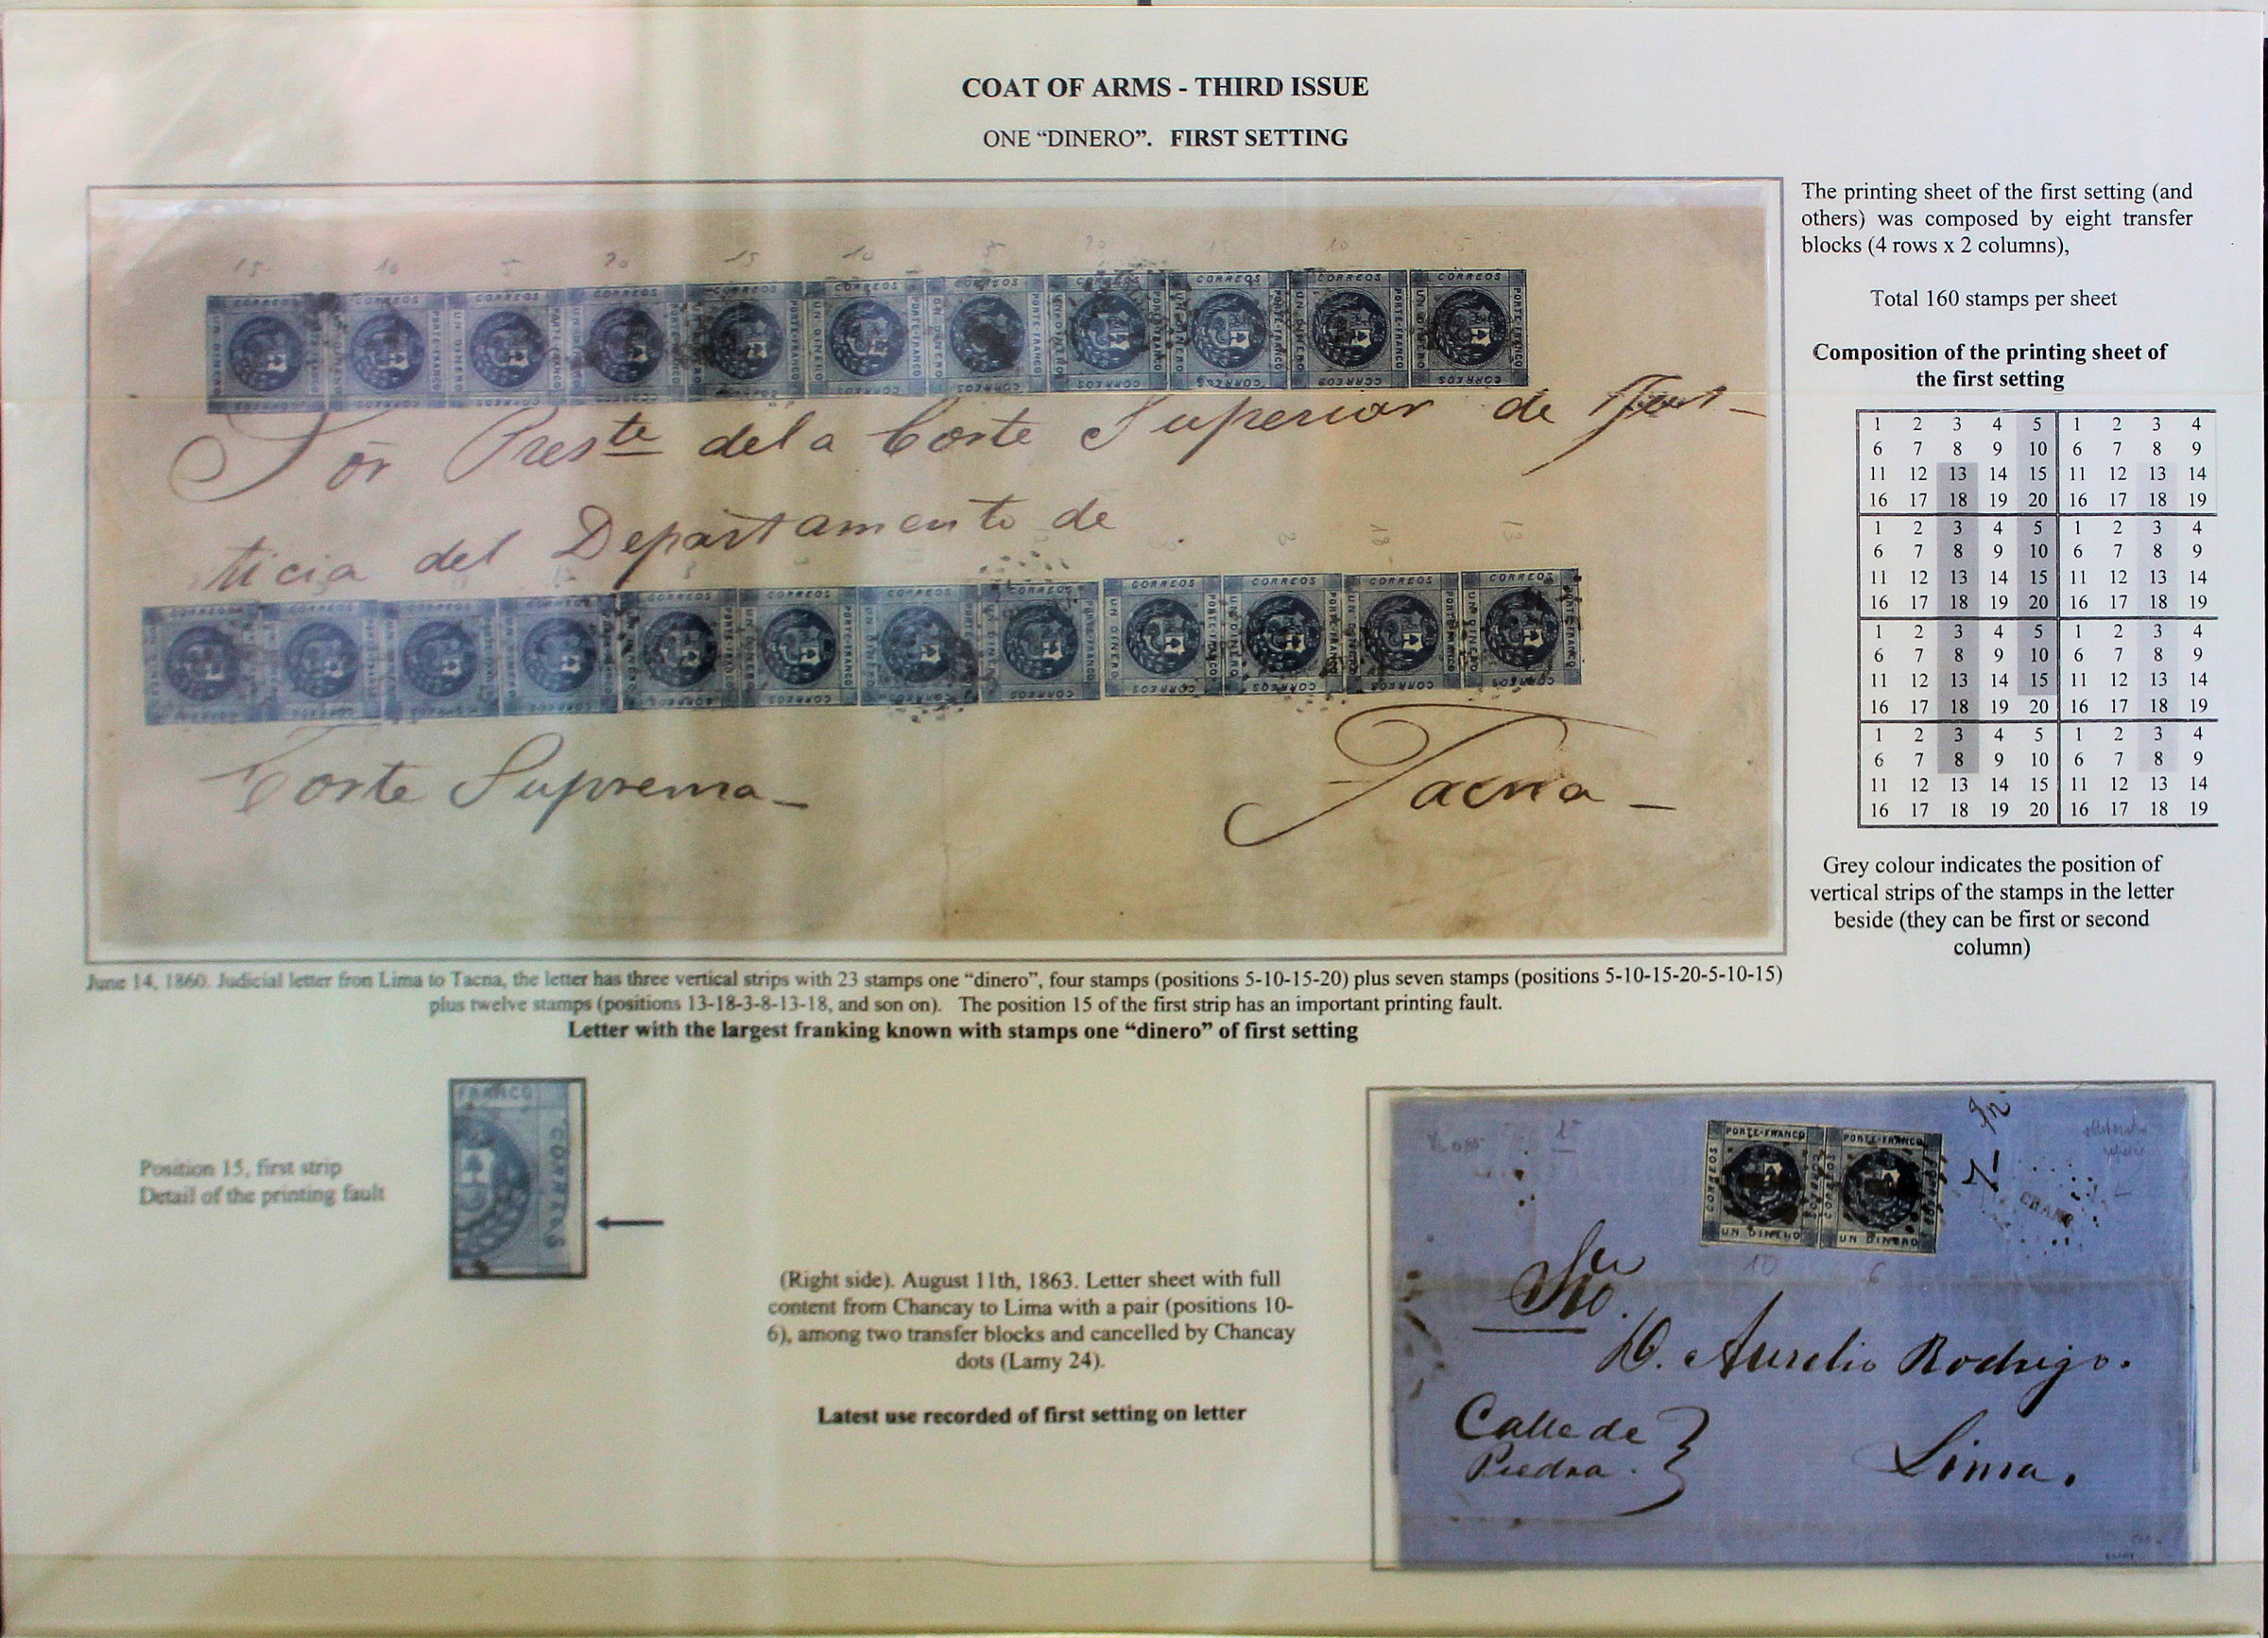 COAT OF ARMS - THIRD ISSUE
ONE “DINERO”. FIRST SETTING
15 10 5 20 15 10 5 20 15 10 5
CORREOS CORREOS CORREOS CORREOS CORREOS CORREOS CORREOS CORREOS CORREOS CORREOS CORREOS
UN DINERO PORTE-FRANCO
Sor Preste dela Corte Superior de Jus-
ticia del Departamento de
CORREOS CORREOS CORREOS CORREOS CORREOS CORREOS CORREOS CORREOS CORREOS CORREOS CORREOS CORREOS
UN DINERO PORTE-FRANCO
Corte Suprema_
Tacna_
The printing sheet of the first setting (and
others) was composed by eight transfer
blocks (4 rows x 2 columns),
Total 160 stamps per sheet
Composition of the printing sheet of
the first setting
1 2 3 4 5 1 2 3 4
6 7 8 9 10 6 7 8 9
11 12 13 14 15 11 12 13 14
16 17 18 19 20 16 17 18 19
1 2 3 4 5 1 2 3 4
6 7 8 9 10 6 7 8 9
11 12 13 14 15 11 12 13 14
16 17 18 19 20 16 17 18 19
1 2 3 4 5 1 2 3 4
6 7 8 9 10 6 7 8 9
11 12 13 14 15 11 12 13 14
16 17 18 19 20 16 17 18 19
1 2 3 4 5 1 2 3 4
6 7 8 9 10 6 7 8 9
11 12 13 14 15 11 12 13 14
16 17 18 19 20 16 17 18 19
Grey colour indicates the position of
vertical strips of the stamps in the letter
beside (they can be first or second
column)
June 14, 1860. Judicial letter fron Lima to Tacna, the letter has three vertical strips with 23 stamps one “dinero”, four stamps (positions 5-10-15-20) plus seven stamps (positions 5-10-15-20-5-10-15)
plus twelve stamps (positions 13-18-3-8-13-18, and son on). The position 15 of the first strip has an important printing fault.
Letter with the largest franking known with stamps one “dinero” of first setting
FRANCO
CORREOS
Position 15, first strip
Detail of the printing fault
(Right side). August 11th, 1863. Letter sheet with full
content from Chancay to Lima with a pair (positions 10-
6), among two transfer blocks and cancelled by Chancay
dots (Lamy 24).
Latest use recorded of first setting on letter
PORTE-FRANCO PORTE-FRANCO
CORREOS CORREOS CORREOS CORREOS
UN DINERO UN DINERO
10 6
D. Aurelio Rodrigo.
Calle de
Piedra.
Lima.